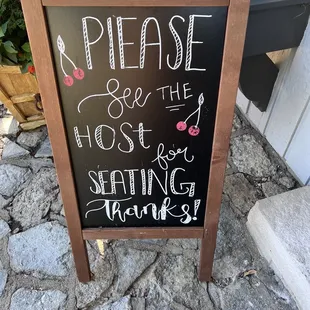 PLEASE
See THE
HOST for
SEATING,
Thanks!